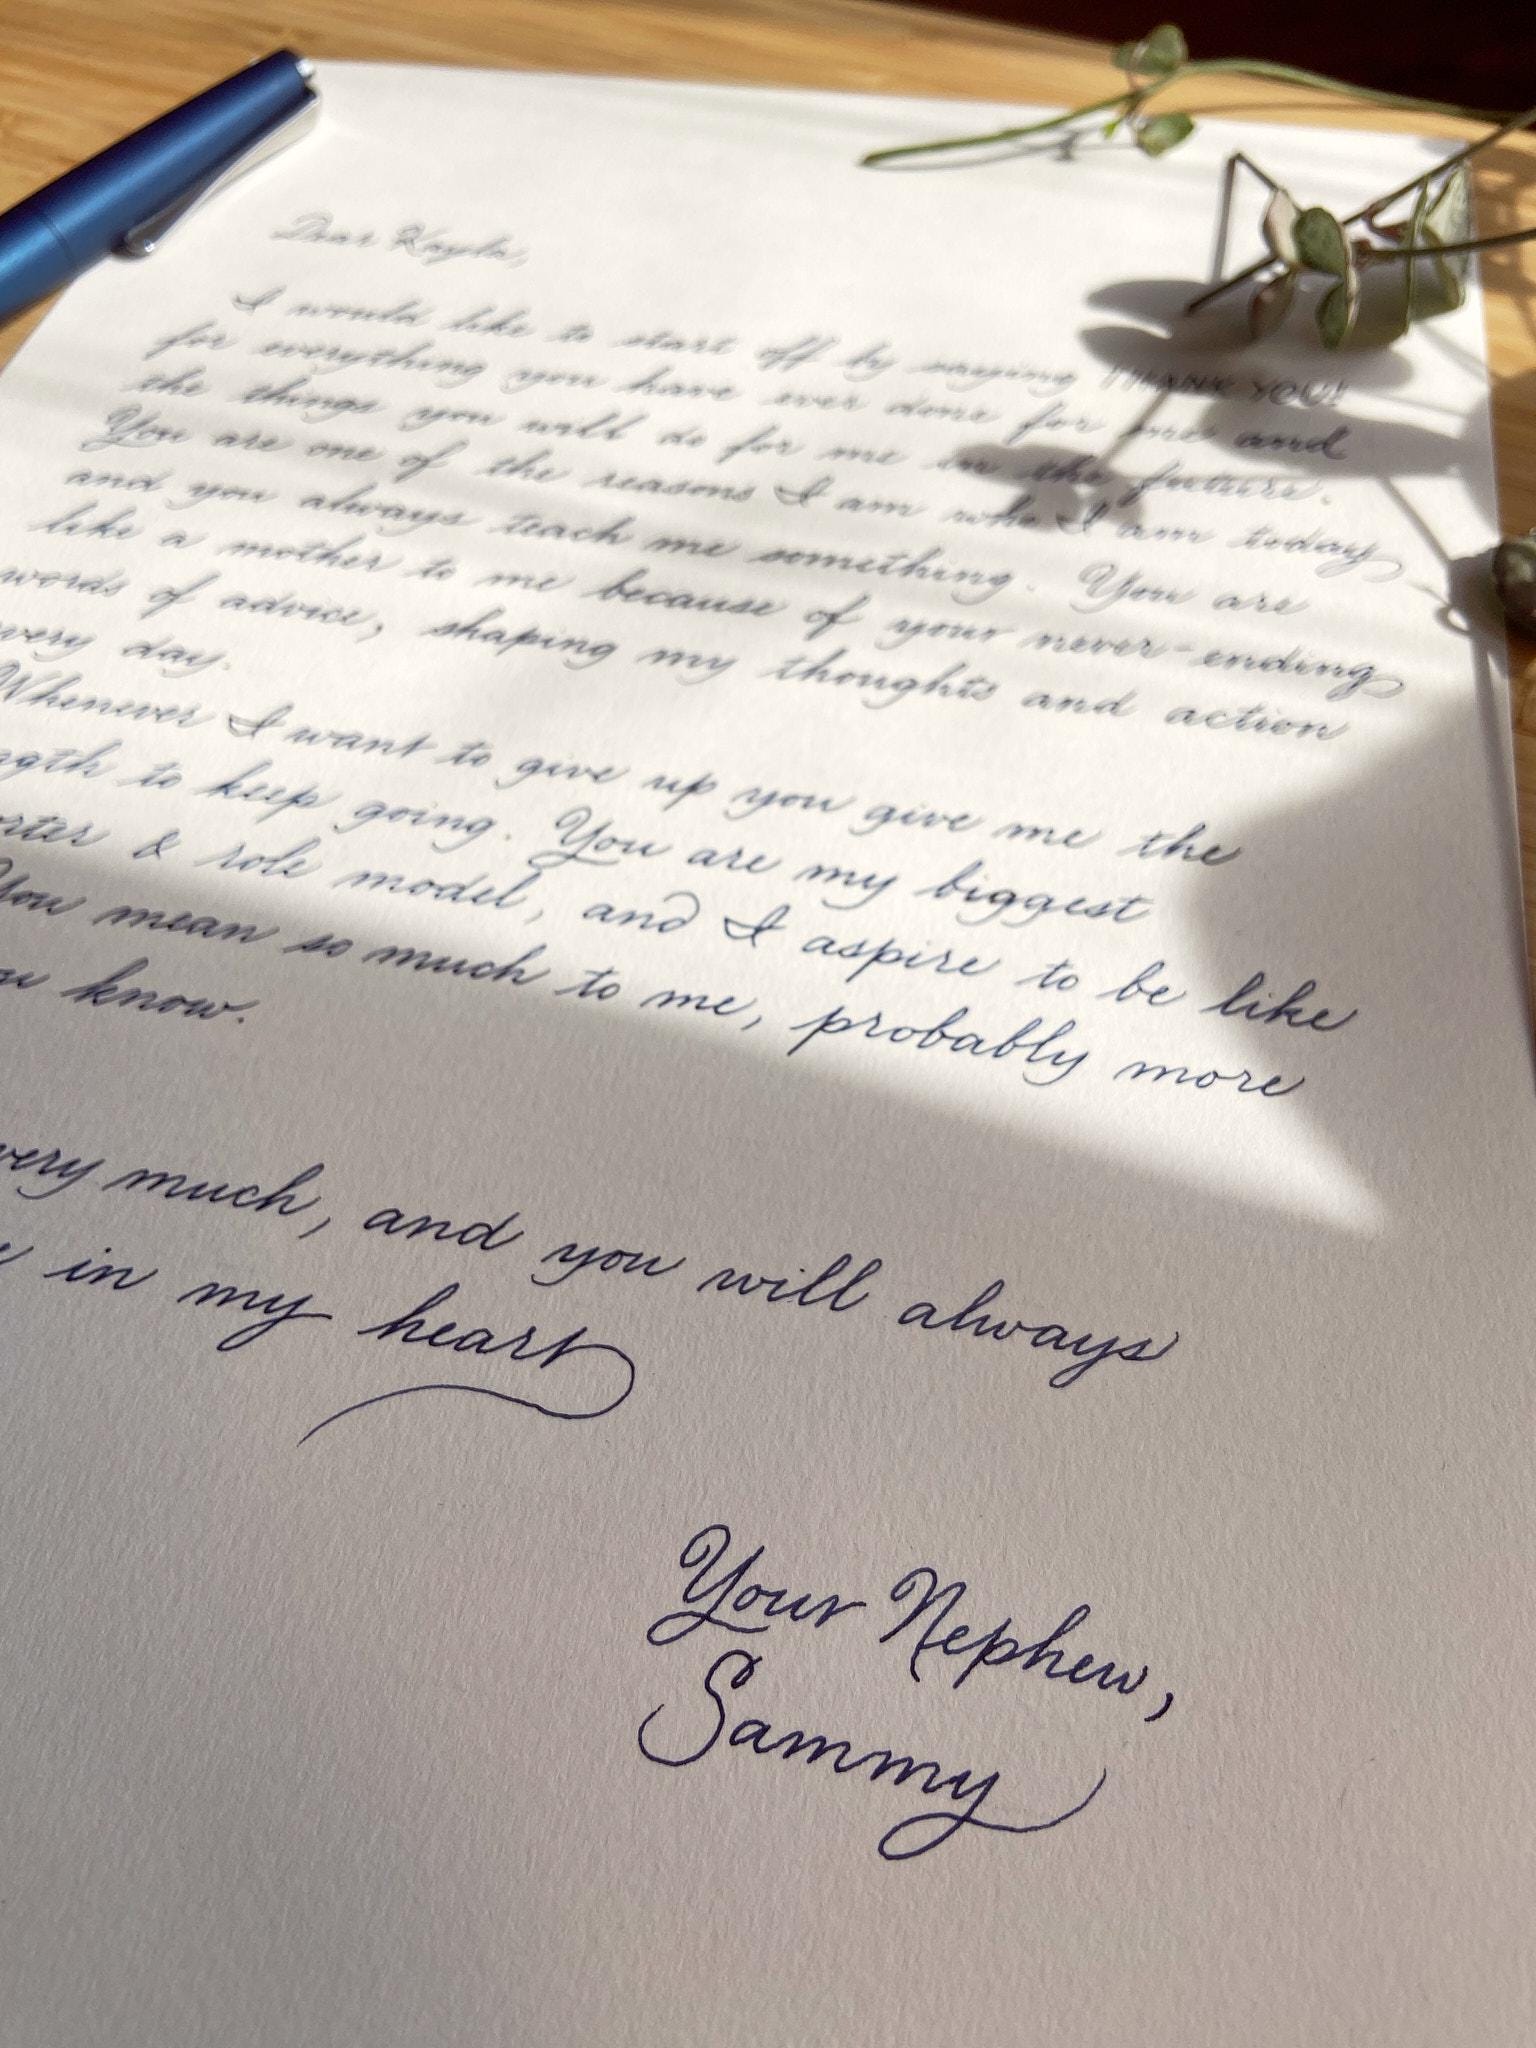 Dear Kayla,
I would like to start off by saying THANK YOU!
for everything you have ever done for me and
the things you will do for me in the future.
You are one of the reasons I am who I am today
and you always teach me something. You are
like a mother to me because of your never-ending
words of advice, shaping my thoughts and action
very day.
Whenever I want to give up you give me the
ngth to keep going. You are my biggest
orter & role model, and I aspire to be like
You mean so much to me, probably more
u know.
very much, and you will always
in my heart
Your Nephew,
Sammy